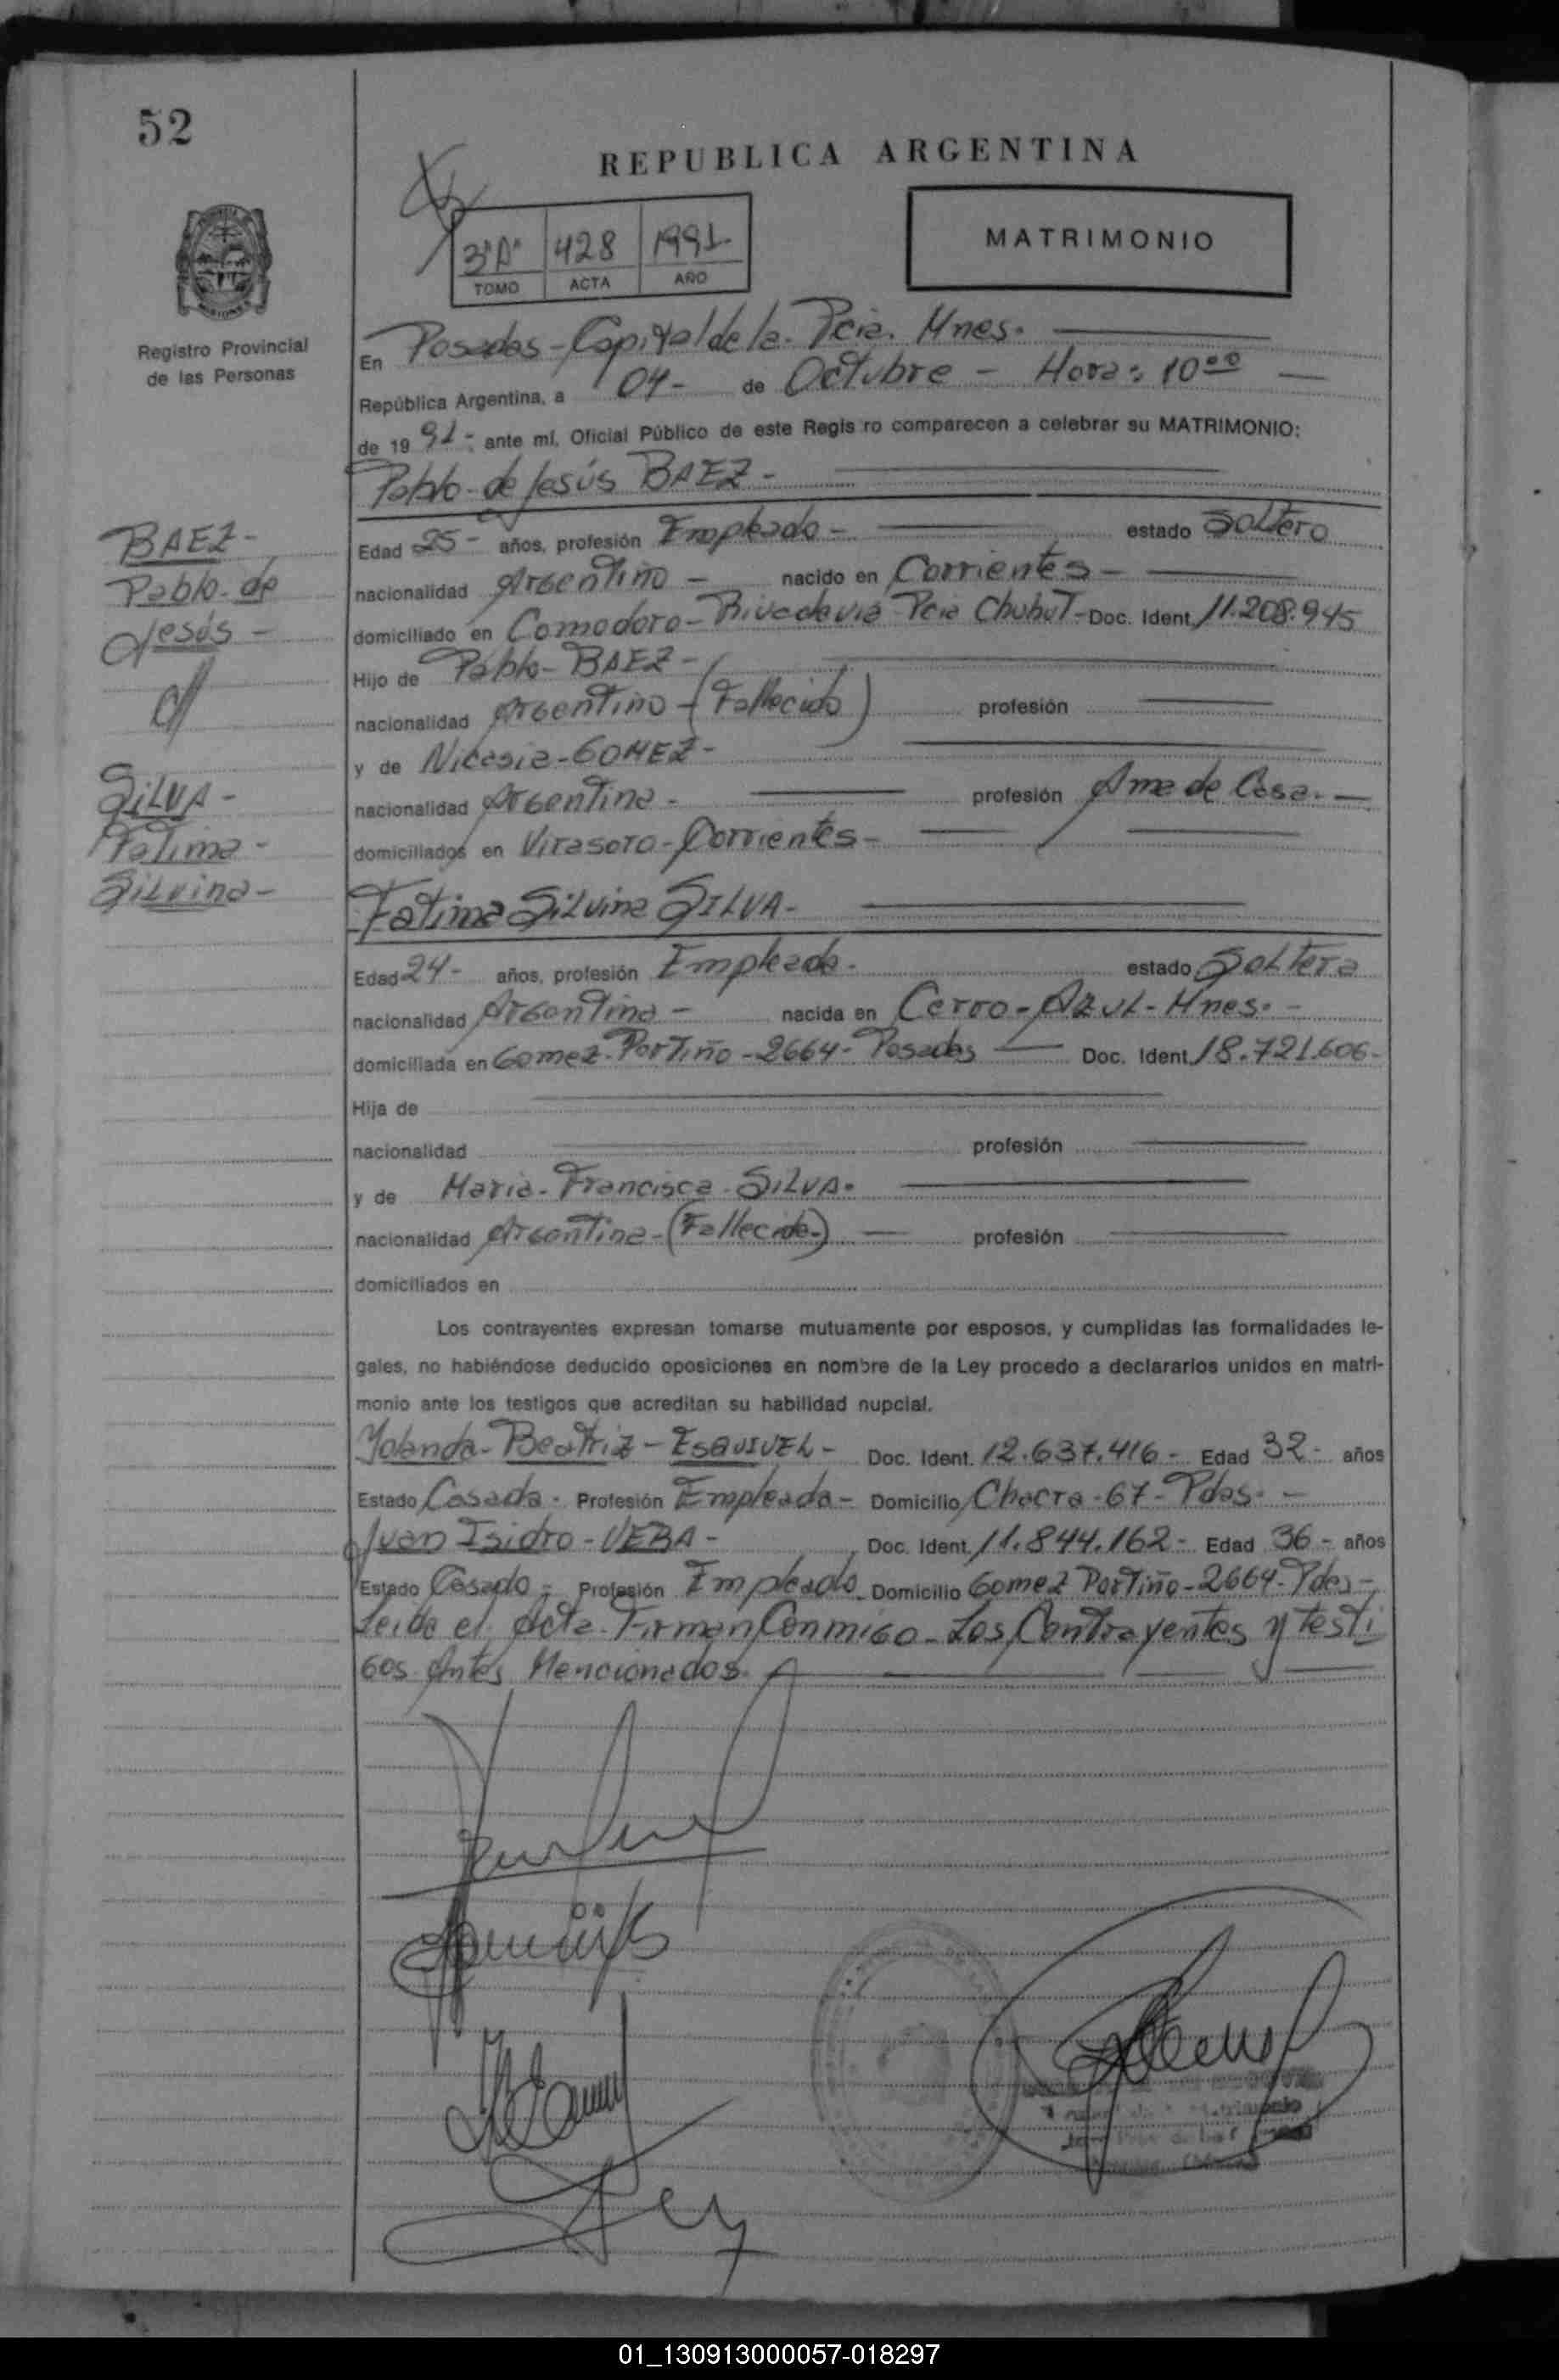 52
REPUBLICA ARGENTINA
3º "A" 428 1991-
TOMO ACTA AÑO
MATRIMONIO
Registro Provincial
de las Personas
En Posadas - Capital de la Pcia. Mnes.
República Argentina, a 04- de Octubre - Hora: 10ºº
de 19 91- ante mí, Oficial Público de este Regis ro comparecen a celebrar su MATRIMONIO:
Pablo de Jesús BAEZ-
BAEZ-
Pablo de
Jesús-
Edad 25- años, profesión Empleado- estado Soltero
nacionalidad Argentino- nacido en Corrientes-
domiciliado en Comodoro-Rivadavia Pcia Chubut- Doc. Ident. 11.208.945
Hijo de Pablo-BAEZ-
nacionalidad Argentino-(Fallecido) profesión
y de Nicasia-GOMEZ-
nacionalidad Argentina- profesión Ama de Casa.-
domiciliados en Virasoro-Corrientes-
SILVA-
Fatima-
Silvina-
Fatima Silvina SILVA-
Edad 24- años, profesión Empleada- estado Soltera
nacionalidad Argentina- nacida en Cerro-Azul-Mnes.-
domiciliada en Gomez-Portiño-2664-Posadas Doc. Ident. 18.721.606-
Hija de
nacionalidad profesión
y de Maria-Francisca-SILVA.
nacionalidad Argentina-(Fallecida-) profesión
domiciliados en
Los contrayentes expresan tomarse mutuamente por esposos, y cumplidas las formalidades le-
gales, no habiéndose deducido oposiciones en nombre de la Ley procedo a declararlos unidos en matri-
monio ante los testigos que acreditan su habilidad nupcial.
Yolanda-Beatriz-ESQUIVEL- Doc. Ident. 12.637.416- Edad 32- años
Estado Casada- Profesión Empleada- Domicilio Chacra-67-Pdas.-
Juan Isidro-VERA- Doc. Ident. 11.844.162- Edad 36- años
Estado Casado- Profesión Empleado Domicilio Gomez Portiño-2664-Pdas-
Leida el Acta Firman Conmigo-Los Contrayentes y testi
gos Antes Mencionados.
01_130913000057-018297